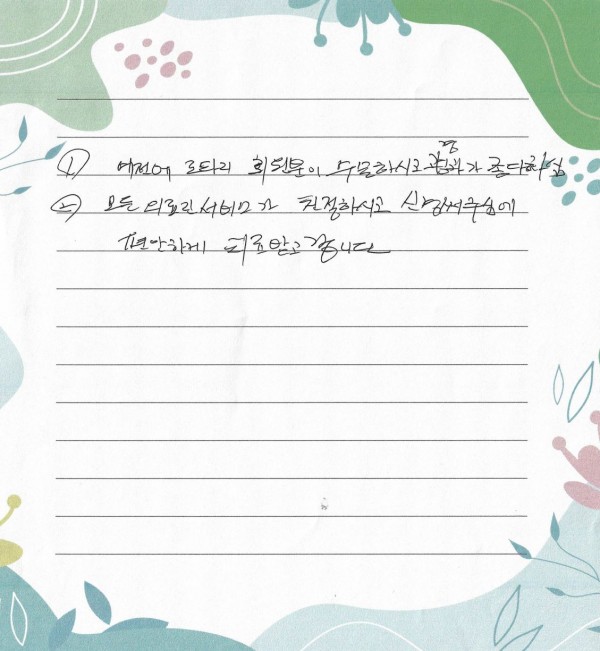 ① 예전에 로타리 회원분이 수술하시고 경과가 좋다하심
② 모든 의료진 서비스가 친절하시고 신경써주심에
편안하게 치료받고 갑니다